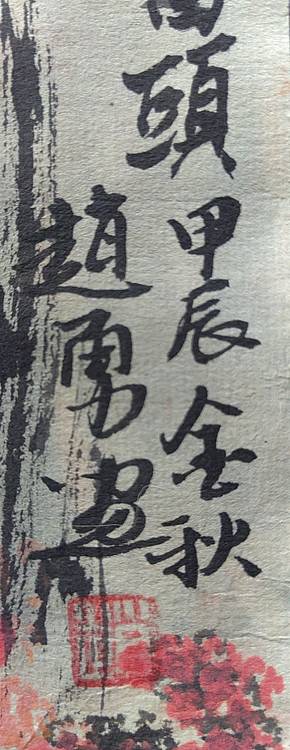 頭
甲辰金秋
趙勇畫